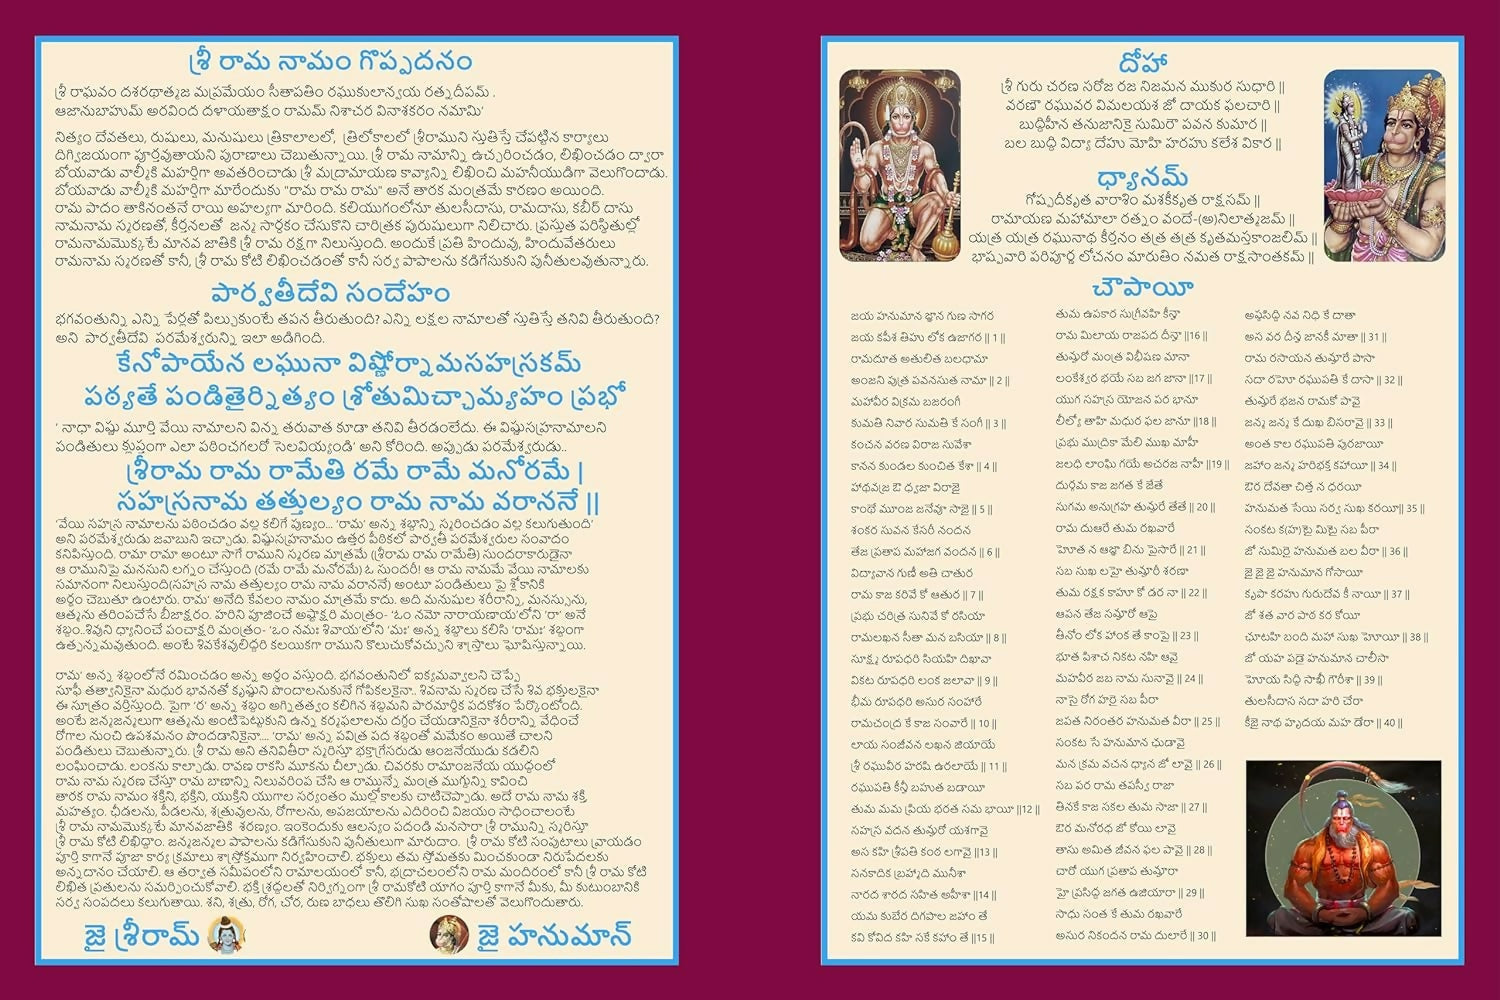 శ్రీ రామ నామం గొప్పదనం
శ్రీ రాఘవం దశరథాత్మజ మప్రమేయం సీతాపతిం రఘుకులాన్వయ రత్నదీపమ్ .
ఆజానుబాహుమ్ అరవింద దళాయతాక్షం రామమ్ నిశాచర వినాశకరం నమామి'
నిత్యం దేవతలు, రుషులు, మనుషులు త్రికాలాలలో, త్రిలోకాలలో శ్రీరాముని స్తుతిస్తే చేపట్టిన కార్యాలు
దిగ్విజయంగా పూర్తవుతాయని పురాణాలు చెబుతున్నాయి. శ్రీ రామ నామాన్ని ఉచ్ఛరించడం, లిఖించడం ద్వారా
బోయవాడు వాల్మీకి మహర్షిగా అవతరించాడు శ్రీ మద్రామాయణ కావ్యాన్ని లిఖించి మహనీయుడిగా వెలుగొందాడు.
బోయవాడు వాల్మీకి మహర్షిగా మారేందుకు "రామ రామ రామ" అనే తారక మంత్రమే కారణం అయింది.
రామ పాదం తాకినంతనే రాయి అహల్యగా మారింది. కలియుగంలోనూ తులసీదాసు, రామదాసు, కబీర్ దాసు
నామనామ స్మరణతో, కీర్తనలతో జన్మ సార్థకం చేసుకొని చారిత్రక పురుషులుగా నిలిచారు. ప్రస్తుత పరిస్థితుల్లో
రామనామమొక్కటే మానవ జాతికి శ్రీ రామ రక్షగా నిలుస్తుంది. అందుకే ప్రతి హిందువు, హిందువేతరులు
రామనామ స్మరణతో కానీ, శ్రీ రామ కోటి లిఖించడంతో కానీ సర్వ పాపాలను కడిగేసుకుని పునీతులవుతున్నారు.
పార్వతీదేవి సందేహం
భగవంతున్ని ఎన్ని పేర్లతో పిల్చుకుంటే తపన తీరుతుంది? ఎన్ని లక్షల నామాలతో స్తుతిస్తే తనివి తీరుతుంది?
అని పార్వతీదేవి పరమేశ్వరున్ని ఇలా అడిగింది.
కేనోపాయేన లఘునా విష్ణోర్నామసహస్రకమ్
పఠ్యతే పండితైర్నిత్యం శ్రోతుమిచ్ఛామ్యహం ప్రభో
' నాధా విష్ణు మూర్తి వేయి నామాలని విన్న తరువాత కూడా తనివి తీరడంలేదు. ఈ విష్ణుసహస్రనామాలని
పండితులు క్లుప్తంగా ఎలా పఠించగలరో సెలవియ్యండి' అని కోరింది. అప్పుడు పరమేశ్వరుడు..
శ్రీరామ రామ రామేతి రమే రామే మనోరమే |
సహస్రనామ తత్తుల్యం రామ నామ వరాననే ||
'వేయి సహస్ర నామాలను పఠించడం వల్ల కలిగే పుణ్యం... 'రామ' అన్న శబ్దాన్ని స్మరించడం వల్ల కలుగుతుంది'
అని పరమేశ్వరుడు జవాబుని ఇచ్చాడు. విష్ణుసహస్రనామం ఉత్తర పీఠికలో పార్వతీ పరమేశ్వరుల సంవాదం
కనిపిస్తుంది. రామా రామా అంటూ సాగే రాముని స్మరణ మాత్రమే (శ్రీరామ రామ రామేతి) సుందరాకారుడైనా
ఆ రామునిపై మనసుని లగ్నం చేస్తుంది (రమే రామే మనోరమే) ఓ సుందరీ! ఆ రామ నామమే వేయి నామాలకు
సమానంగా నిలుస్తుంది(సహస్ర నామ తత్తుల్యం రామ నామ వరాననే) అంటూ పండితులు పై శ్లోకానికి
అర్థం చెబుతూ ఉంటారు. రామ' అనేది కేవలం నామం మాత్రమే కాదు. అది మనుషుల శరీరాన్ని, మనస్సును,
ఆత్మను తరింపచేసే బీజాక్షరం. హరిని పూజించే అష్టాక్షరి మంత్రం- 'ఓం నమో నారాయణాయ'లోని 'రా' అనే
శబ్దం..శివుని ధ్యానించే పంచాక్షరి మంత్రం- 'ఒం నమః శివాయ'లోని 'మః' అన్న శబ్దాలు కలిసి 'రామః' శబ్దంగా
ఉత్పన్నమవుతుంది. అంటే శివకేశవులిద్దరి కలయికగా రాముని కొలుచుకోవచ్చుని శాస్త్రాలు ఘోషిస్తున్నాయి.
రామ' అన్న శబ్దంలోనే రమించడం అన్న అర్థం వస్తుంది. భగవంతునిలో ఐక్యమవ్వాలని చెప్పే
సూఫీ తత్వానికైనా మధుర భావనతో కృష్ణుని పొందాలనుకునే గోపికలకైనా.. శివనామ స్మరణ చేసే శివ భక్తులకైనా
ఈ సూత్రం వర్తిస్తుంది. పైగా 'ర' అన్న శబ్దం అగ్నితత్వం కలిగిన శబ్దమని పారమార్థిక పదకోశం పేర్కొంటోంది.
అంటే జన్మజన్మలుగా ఆత్మను అంటిపెట్టుకుని ఉన్న కర్మఫలాలను దగ్ధం చేయడానికైనా శరీరాన్ని వేధించే
రోగాల నుంచి ఉపశమనం పొందడానికైనా.... 'రామ' అన్న పవిత్ర పద శబ్దంతో మమేకం అయితే చాలని
పండితులు చెబుతున్నారు. శ్రీ రామ అని తనివితీరా స్మరిస్తూ భక్తాగ్రేసరుడు ఆంజనేయుడు కడలిని
లంఘించాడు. లంకను కాల్చాడు. రావణ రాకసి మూకను చీల్చాడు. చివరకు రామాంజనేయ యుద్ధంలో
రామ నామ స్మరణ చేస్తూ రామ బాణాన్ని నిలువరింప చేసి ఆ రామున్నే మంత్ర ముగ్ధున్ని కావించి
తారక రామ నామం శక్తిని, భక్తిని, యుక్తిని యుగాల సర్యంతం ముల్లోకాలకు చాటిచెప్పాడు. అదే రామ నామ శక్తి
మహత్యం. ఛీడలను, పీడలను, శత్రువులను, రోగాలను, అపజయాలను ఎదిరించి విజయం సాధించాలంటే
శ్రీ రామ నామమొక్కటే మానవజాతికి శరణ్యం. ఇంకెందుకు ఆలస్యం పదండి మనసారా శ్రీ రామున్ని స్మరిస్తూ
శ్రీ రామ కోటి లిఖిద్దాం. జన్మజన్మల పాపాలను కడిగేసుకుని పునీతులుగా మారుదాం. శ్రీ రామ కోటి సంపుటాలు వ్రాయడం
పూర్తి కాగానే పూజా కార్య క్రమాలు శాస్త్రోక్తముగా నిర్వహించాలి. భక్తులు తమ స్తోమతకు మించకుండా నిరుపేదలకు
అన్నదానం చేయాలి. ఆ తర్వాత సమీపంలోని రామాలయంలో కానీ, భద్రాచలంలోని రామ మందిరంలో కానీ శ్రీ రామ కోటి
లిఖిత ప్రతులను సమర్పించుకోవాలి. భక్తి శ్రద్ధలతో నిర్విగ్నంగా శ్రీ రామకోటి యాగం పూర్తి కాగానే మీకు, మీ కుటుంబానికి
సర్వ సంపదలు కలుగుతాయి. శని, శత్రు, రోగ, చోర, రుణ బాధలు తొలిగి సుఖ సంతోషాలతో వెలుగొందుతారు.
జై శ్రీరామ్
జై హనుమాన్
దోహా
శ్రీ గురు చరణ సరోజ రజ నిజమన ముకుర సుధారి ||
వరణౌ రఘువర విమలయశ జో దాయక ఫలచారి ||
బుద్ధిహీన తనుజానికై సుమిరౌ పవన కుమార ||
బల బుద్ధి విద్యా దేహు మోహి హరహు కలేశ వికార ||
ధ్యానమ్
గోష్పదీకృత వారాశిం మశకీకృత రాక్షసమ్ ||
రామాయణ మహామాలా రత్నం వందే-(అ)నిలాత్మజమ్ ||
యత్ర యత్ర రఘునాథ కీర్తనం తత్ర తత్ర కృతమస్తకాంజలిమ్ ||
భాష్పవారి పరిపూర్ణ లోచనం మారుతిం నమత రాక్షసాంతకమ్ ||
చౌపాయీ
జయ హనుమాన జ్ఞాన గుణ సాగర
జయ కపీశ తిహు లోక ఉజాగర || 1 ||
రామదూత అతులిత బలధామా
అంజని పుత్ర పవనసుత నామా || 2 ||
మహావీర విక్రమ బజరంగీ
కుమతి నివార సుమతి కే సంగీ || 3 ||
కంచన వరణ విరాజ సువేశా
కానన కుండల కుంచిత కేశా || 4 ||
హాథవజ్ర ఔ ధ్వజా విరాజై
కాంథే మూంజ జనేవూ సాజై || 5 ||
శంకర సువన కేసరీ నందన
తేజ ప్రతాప మహాజగ వందన || 6 ||
విద్యావాన గుణీ అతి చాతుర
రామ కాజ కరివే కో ఆతుర || 7 ||
ప్రభు చరిత్ర సునివే కో రసియా
రామలఖన సీతా మన బసియా || 8 ||
సూక్ష్మ రూపధరి సియహి దిఖావా
వికట రూపధరి లంక జలావా || 9 ||
భీమ రూపధరి అసుర సంహారే
రామచంద్ర కే కాజ సంవారే || 10 ||
లాయ సంజీవన లఖన జియాయే
శ్రీ రఘువీర హరషి ఉరలాయే || 11 ||
రఘుపతి కీన్హీ బహుత బడాయీ
తుమ మమ ప్రియ భరత సమ భాయీ ||12 ||
సహస్ర వదన తుమ్హరో యశగావై
అస కహి శ్రీపతి కంఠ లగావై ||13 ||
సనకాదిక బ్రహ్మాది మునీశా
నారద శారద సహిత అహీశా ||14 ||
యమ కుబేర దిగపాల జహాం తే
కవి కోవిద కహి సకే కహాం తే ||15 ||
తుమ ఉపకార సుగ్రీవహి కీన్హా
రామ మిలాయ రాజపద దీన్హా ||16 ||
తుమ్హరో మంత్ర విభీషణ మానా
లంకేశ్వర భయే సబ జగ జానా ||17 ||
యుగ సహస్ర యోజన పర భానూ
లీల్యో తాహి మధుర ఫల జానూ ||18 ||
ప్రభు ముద్రికా మేలి ముఖ మాహీ
జలధి లాంఘి గయే అచరజ నాహీ ||19 ||
దుర్గమ కాజ జగత కే జేతే
సుగమ అనుగ్రహ తుమ్హరే తేతే || 20 ||
రామ దుఆరే తుమ రఖవారే
హోత న ఆజ్ఞా బిను పైసారే || 21 ||
సబ సుఖ లహై తుమ్హారీ శరణా
తుమ రక్షక కాహూ కో డర నా || 22 ||
ఆపన తేజ సమ్హారో ఆపై
తీనోం లోక హాంక తే కాంపై || 23 ||
భూత పిశాచ నికట నహి ఆవై
మహవీర జబ నామ సునావై || 24 ||
నాసై రోగ హరై సబ పీరా
జపత నిరంతర హనుమత వీరా || 25 ||
సంకట సే హనుమాన ఛుడావై
మన క్రమ వచన ధ్యాన జో లావై || 26 ||
సబ పర రామ తపస్వీ రాజా
తినకే కాజ సకల తుమ సాజా || 27 ||
ఔర మనోరధ జో కోయి లావై
తాసు అమిత జీవన ఫల పావై || 28 ||
చారో యుగ ప్రతాప తుమ్హారా
హై ప్రసిద్ధి జగత ఉజియారా || 29 ||
సాధు సంత కే తుమ రఖవారే
అసుర నికందన రామ దులారే || 30 ||
అష్ఠసిద్ధి నవ నిధి కే దాతా
అస వర దీన్హ జానకీ మాతా || 31 ||
రామ రసాయన తుమ్హారే పాసా
సదా రహో రఘుపతి కే దాసా || 32 ||
తుమ్హరే భజన రామకో పావై
జన్మ జన్మ కే దుఖ బిసరావై || 33 ||
అంత కాల రఘుపతి పురజాయీ
జహాం జన్మ హరిభక్త కహాయీ || 34 ||
ఔర దేవతా చిత్త న ధరయీ
హనుమత సేయి సర్వ సుఖ కరయీ|| 35 ||
సంకట క(హ)టై మిటై సబ పీరా
జో సుమిరై హనుమత బల వీరా || 36 ||
జై జై జై హనుమాన గోసాయీ
కృపా కరహు గురుదేవ కీ నాయీ || 37 ||
జో శత వార పాఠ కర కోయీ
ఛూటహి బంది మహా సుఖ హోయీ || 38 ||
జో యహ పడై హనుమాన చాలీసా
హోయ సిద్ధి సాఖీ గౌరీశా || 39 ||
తులసీదాస సదా హరి చేరా
కీజై నాథ హృదయ మహ డేరా || 40 ||